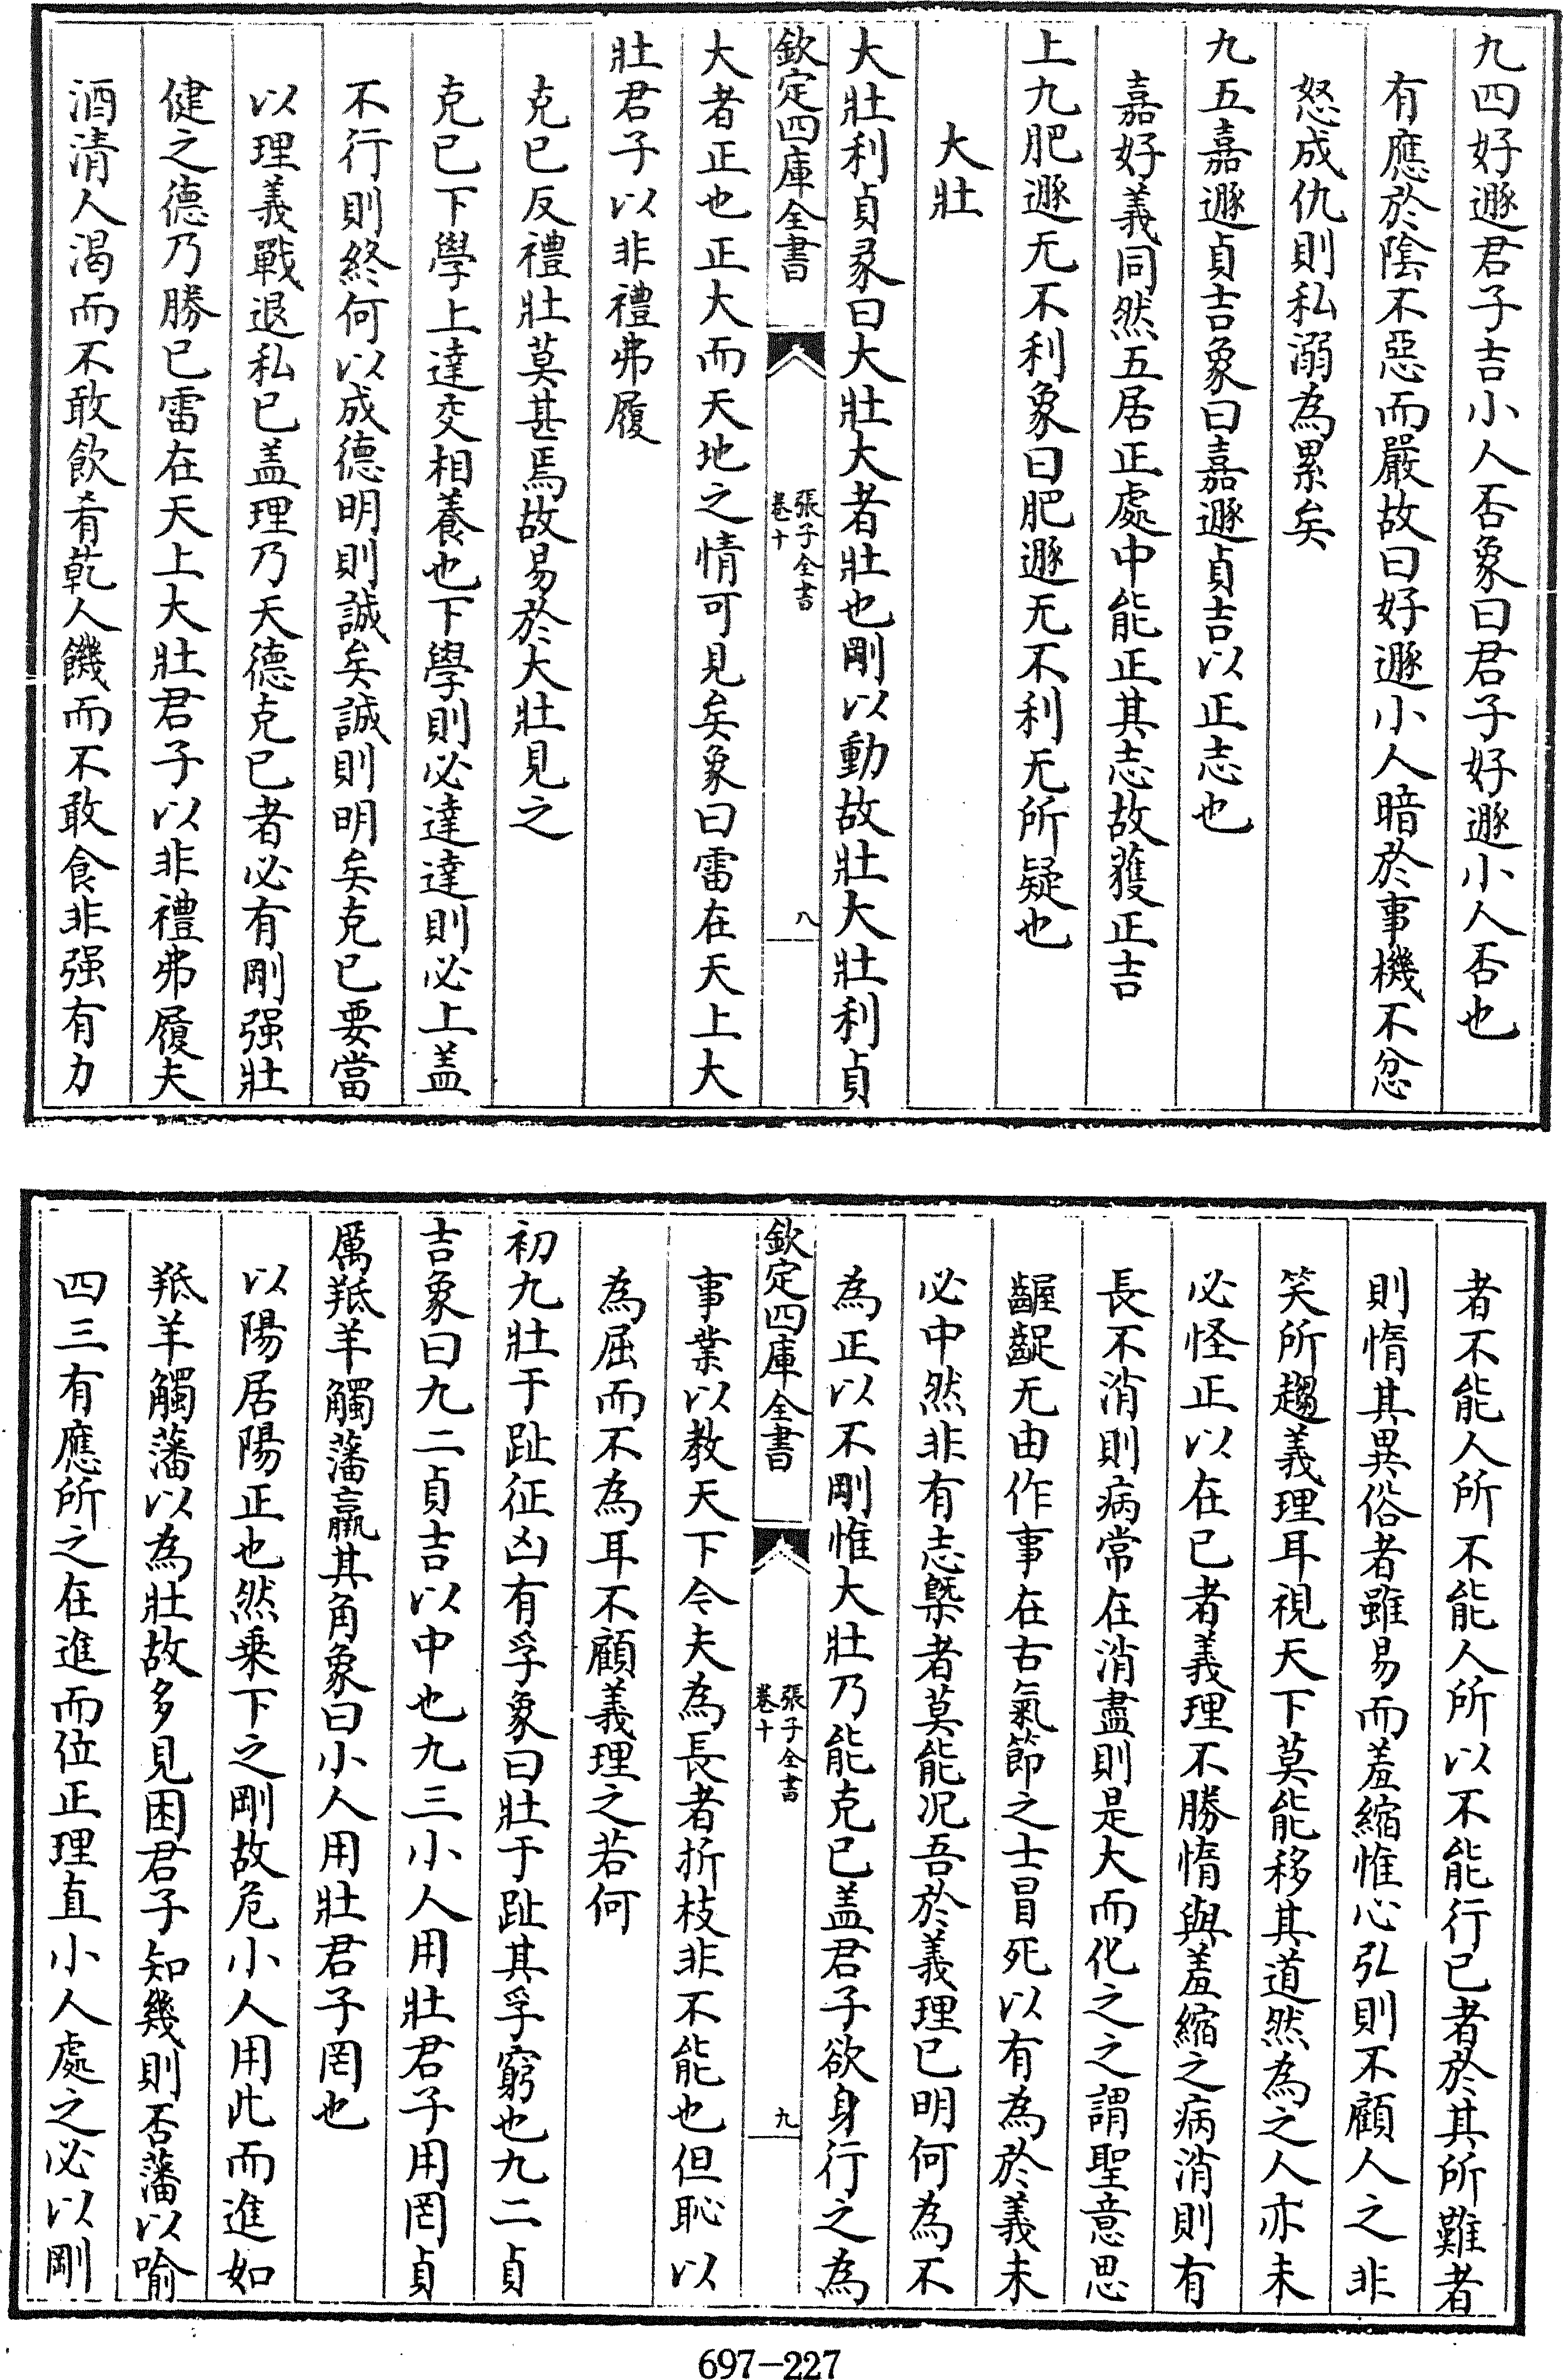 九四好遯君子吉小人否象曰君子好遯小人否也
有應於陰不惡而嚴故曰好遯小人暗於事機不忿
怒成仇則私溺為累矣
九五嘉遯貞吉象曰嘉遯貞吉以正志也
嘉好義同然五居正處中能正其志故獲正吉
上九肥遯无不利象曰肥遯无不利无所疑也
大壯
大壯利貞彖曰大壯大者壯也剛以動故壯大壯利貞
欽定四庫全書
張子全書
卷十
八
大者正也正大而天地之情可見矣象曰雷在天上大
壯君子以非禮弗履
克已反禮壯莫甚焉故易於大壯見之
克已下學上達交相養也下學則必達達則必上蓋
不行則終何以成德明則誠矣誠則明矣克已要當
以理義戰退私已蓋理乃天德克已者必有剛强壯
健之德乃勝已雷在天上大壯君子以非禮弗履夫
酒清人渴而不敢飲肴乾人饑而不敢食非强有力
者不能人所不能人所以不能行已者於其所難者
則惰其異俗者雖易而羞縮惟心弘則不顧人之非
笑所趨義理耳視天下莫能移其道然為之人亦未
必怪正以在已者義理不勝惰與羞縮之病消則有
長不消則病常在消盡則是大而化之之謂聖意思
齷齪无由作事在古氣節之士冒死以有為於義未
必中然非有志槩者莫能况吾於義理已明何為不
為正以不剛惟大壯乃能克已蓋君子欲身行之為
欽定四庫全書
張子全書
卷十
九
事業以教天下今夫為長者折枝非不能也但恥以
為屈而不為耳不顧義理之若何
初九壯于趾征凶有孚象曰壯于趾其孚窮也九二貞
吉象曰九二貞吉以中也九三小人用壯君子用罔貞
厲羝羊觸藩羸其角象曰小人用壯君子罔也
以陽居陽正也然乗下之剛故危小人用此而進如
羝羊觸藩以為壯故多見困君子知幾則否藩以喻
四三有應所之在進而位正理直小人處之必以剛
697-227